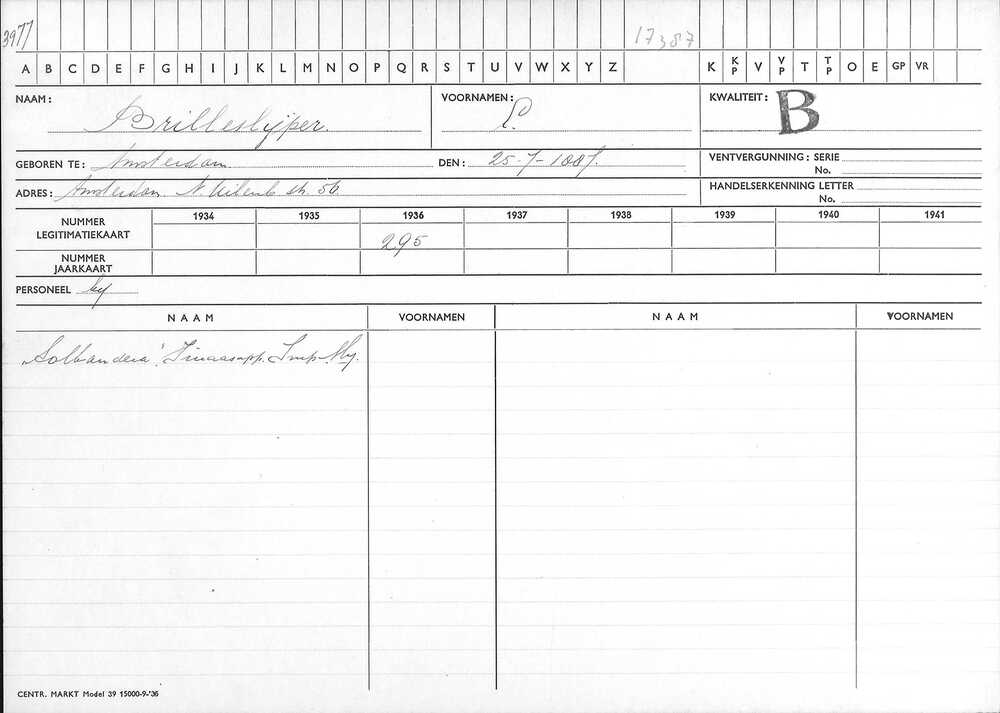 3977
17387
A B C D E F G H I J K L M N O P Q R S T U V W X Y Z K KP V VP T TP O E GP VR
NAAM: Brilleslijper. VOORNAMEN: KWALITEIT: B
GEBOREN TE: Amsterdam DEN: 25-7-1887. VENTVERGUNNING: SERIE
No.
ADRES: Amsterdam N. Uilenb. str. 56 HANDELSERKENNING LETTER
No.
1934 1935 1936 1937 1938 1939 1940 1941
NUMMER LEGITIMATIEKAART 295
NUMMER JAARKAART
PERSONEEL bij
NAAM VOORNAMEN NAAM VOORNAMEN
Imp. Mij.
CENTR. MARKT Model 39 15000-9-'36